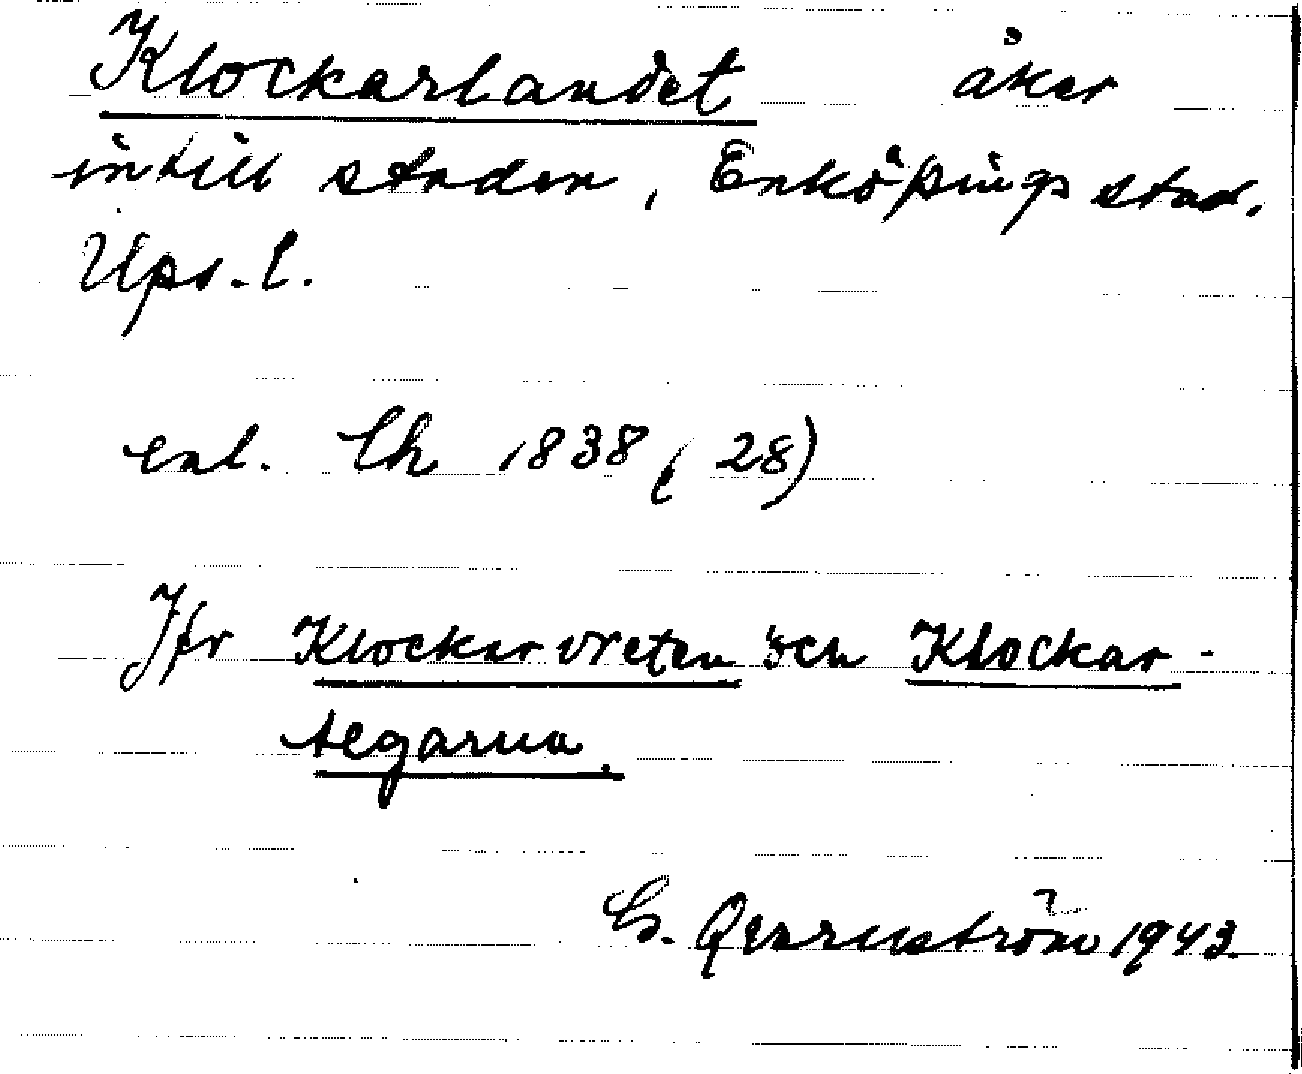 Klockarlandet åker
intill staden, Enköpings stad.
Ups. l.
enl. Ch 1838 (28)
Jfr Klockarvreten och Klockar-
tegarna.
G. Qvarnström 1943